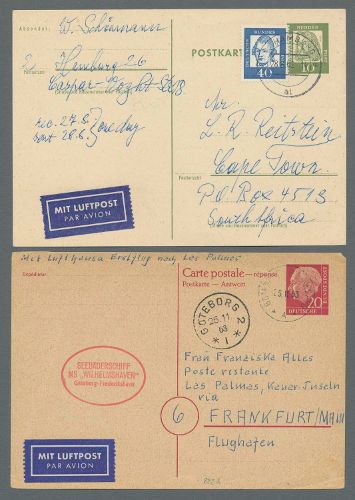 Absender:
W. Schönmann
2 Hamburg 26
Caspar-Voght-Str.
rec. 27.8.
sent 26.8.
MIT LUFTPOST
PAR AVION
POSTKARTE
DEUTSCHE BUNDESPOST
40
10
Mr.
L. R. Reitstein
Cape Town
P.O. Box 4513
South Africa
Mit Lufthansa Erstflug nach Las Palmas
Carte postale — réponse
Postkarte — Antwort
20
DEUTSCHE
GÖTEBORG 2
25.11
63
* 1 *
SEEBÄDERSCHIFF
MS „WILHELMSHAVEN“
Göteborg-Frederikshavn
Frau Franziska Alles
Poste restante
Las Palmas, Kanar-Inseln
via
6 FRANKFURT/MAIN
Flughafen
MIT LUFTPOST
PAR AVION